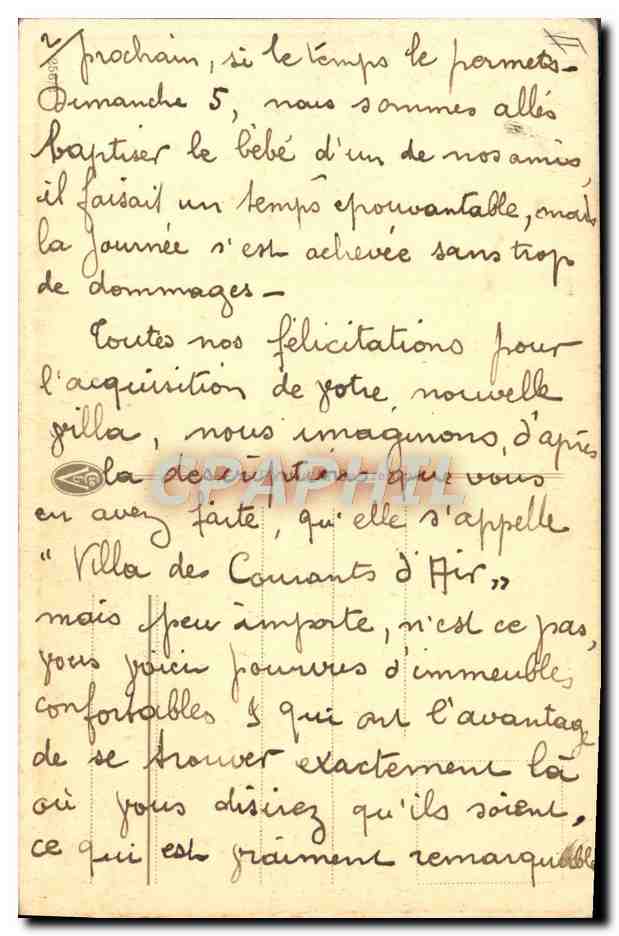 2/ prochain, si le temps le permets - II
Dimanche 5, nous sommes allés
baptiser le bébé d'un de nos amis,
il faisait un temps epouvantable, mais
la journée s'est achevée sans trop
de dommages -
Toutes nos félicitations pour
l'acquisition de votre nouvelle
villa, nous imaginons, d'après
la descriptions que vous
en avez faite, qu'elle s'appelle
"Villa des Courants d'Air„
mais peu importe, n'est ce pas,
vous voici pourvus d'immeubles
confortables & qui ont l'avantage
de se trouver exactement là
où vous disirez qu'ils soient,
ce qui est vraiment remarquable
CPAPHIL